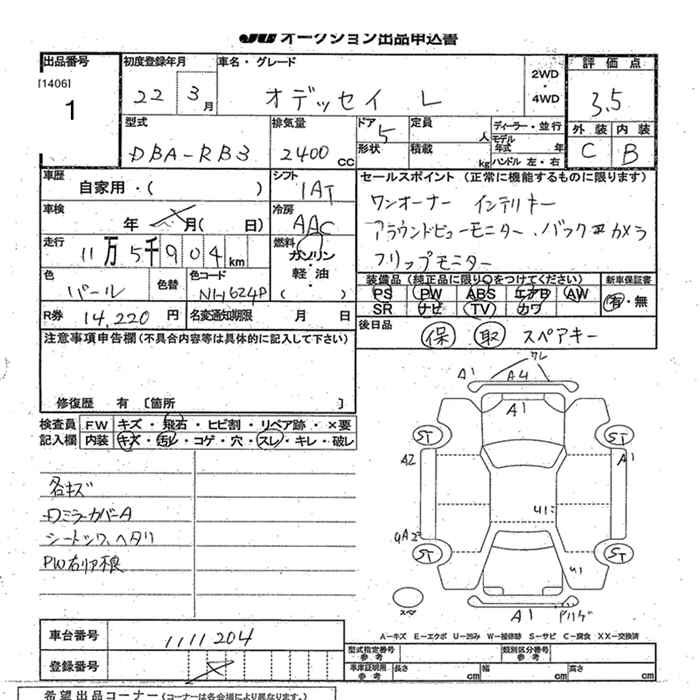 JU オークション出品申込書
出品番号
[1406]
1
初度登録年月
22 3月
車名・グレード
オデッセイ L
2WD
・
4WD
評価点
3.5
型式
DBA-RB3
排気量
2400 CC
ドア 5
形状
定員 人
積載 kg
ディーラー・並行
モデル
年式 年
ハンドル 左・右
外装 内装
C B
車歴
自家用・( )
シフト
IAT
車検
年 月( 日)
冷房
AAC
走行
11万5千904km
燃料
ガソリン
・
軽・油
( )
色
パール
色替
色コード
NH624P
R券 14,220 円
名変通知期限 月 日
セールスポイント (正常に機能するものに限ります)
ワンオーナー インテリキー
アラウンドビューモニター、バックカメラ
フリップモニター
装備品(純正品に限り○をつけてください)
新車保証書
PS PW ABS エアB AW
SR ナビ TV カワ
有・無
後日品
保 取 スペアキー
注意事項申告欄(不具合内容等は具体的に記入して下さい)
修復歴 有 〔箇所 〕
検査員
記入欄
FW キズ・飛石・ヒビ割・リペア跡・×要
内装 キズ・汚レ・コゲ・穴・スレ・キレ・破レ
各キズ
ミラーカバーA
シートシワ、ヘタリ
PW右リア不良
ワレ
A1 A4
A1
ST ST
A2 A1
U1
UA2
ST ST
U1
スペ
A1
A-キズ E-エクボ U-凹み W-補修跡 S-サビ C-腐食 XX-交換済
車台番号 1111204
登録番号
型式指定番号
参考
類別区分番号
参考
車庫証明用
参考
長さ cm 幅 cm 高さ cm
希望出品コーナー(コーナーは各会場により異なります)